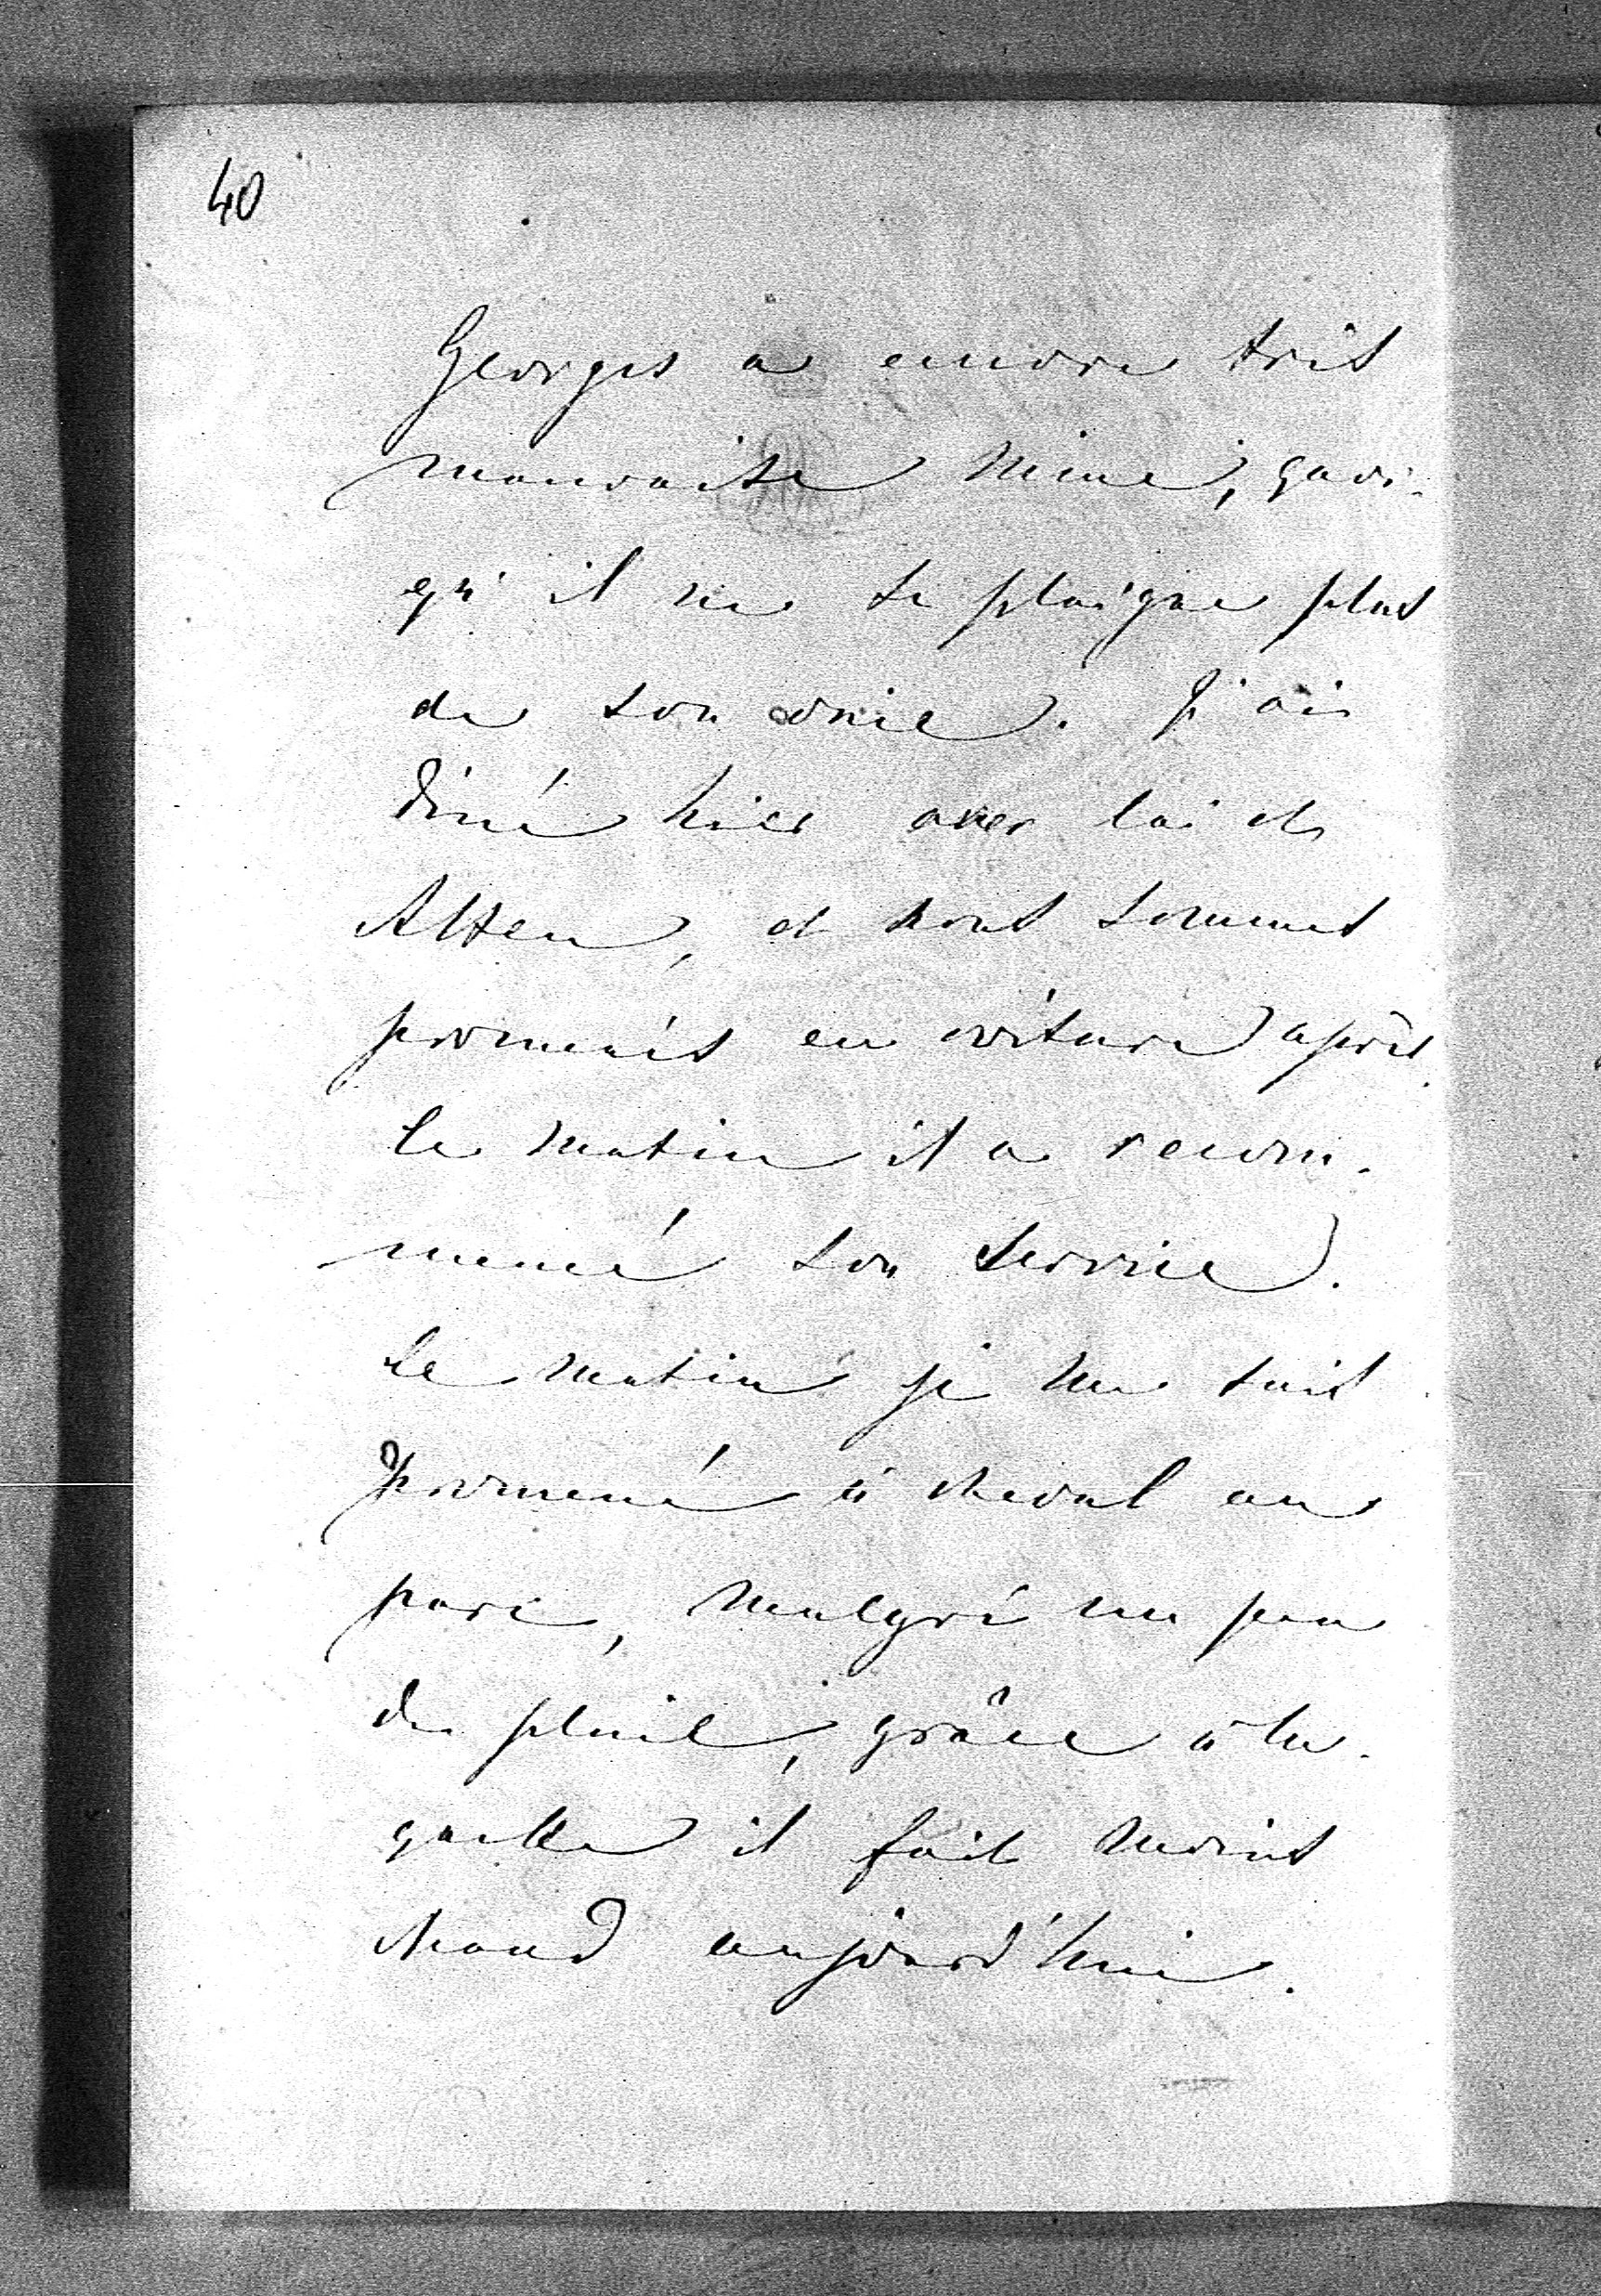 40
Georges a encore très
mauvaise mine, quoi-
qu'il ne se plaigne plus
de son            . J'ai
dîné hier avec lui et
Alten, et nous sommes
promenés en voiture après.
Le matin il a recom-
mencé son service.
Le matin je me suis
promené à cheval au
parc, malgré un peu
de pluie, grâce à la-
quelle il fait moins
chaud aujourd'hui.